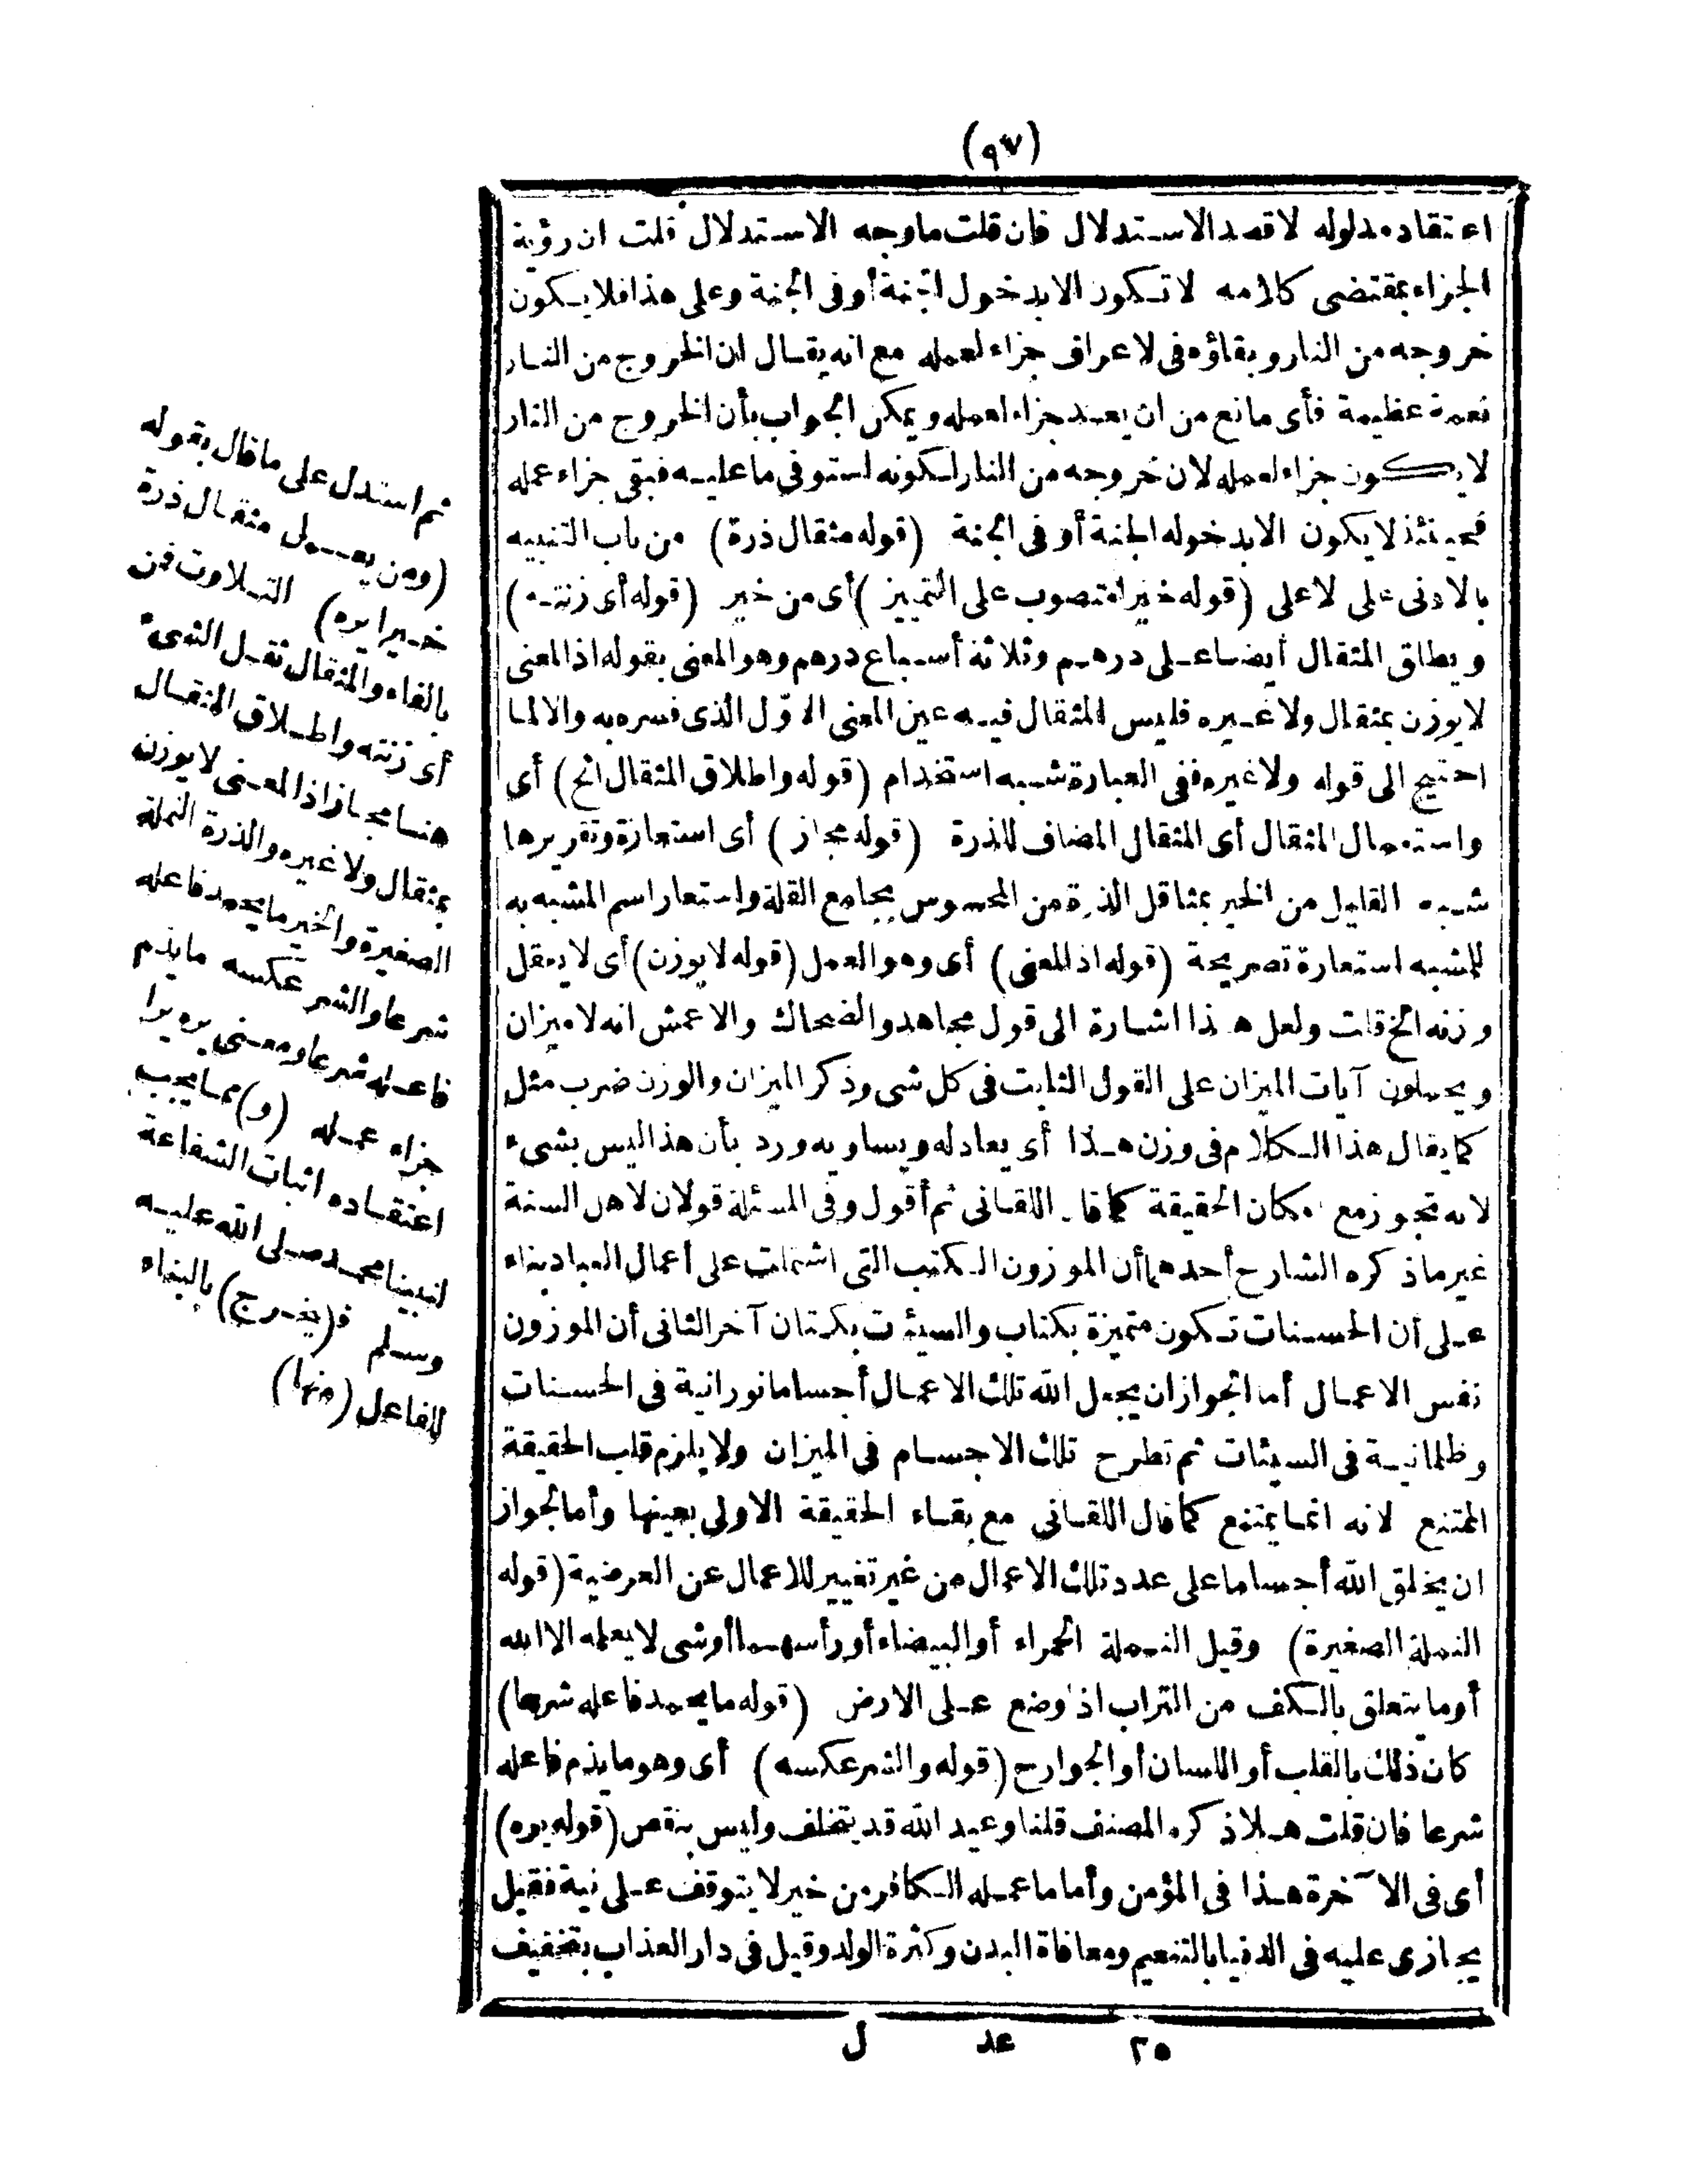 (٩٧)
اعتقاد مدلوله لا قصد الاستدلال فان قلت ما وجه الاستدلال قلت ان رؤية
الجزاء بمقتضى كلامه لا تكون الا بدخول الجنة أو فى الجنة وعلى هذا فلا يكون
خروجه من النار وبقاؤه فى لاعراف جزاء لعمله مع انه يقال ان الخروج من النار
نعمة عظيمة فأى مانع من ان يعد جزاء لعمله ويمكن الجواب بأن الخروج من النار
لا يكون جزاء لعمله لان خروجه من النار لكونه استوفى ما عليه فبقى جزاء عمله
فحينئذ لا يكون الا بدخوله الجنة أو فى الجنة (قوله مثقال ذرة) من باب التنبيه
بالادنى على لاعلى (قوله خيرا منصوب على التمييز) أى من خير (قوله أى زنته)
ويطلق المثقال أيضا على درهم وثلاثة أسباع درهم وهو المعنى بقوله اذ المعنى
لا يوزن بمثقال ولا غيره فليس المثقال فيه عين المعنى الاوّل الذى فسره به والا لما
احتيج الى قوله ولا غيره ففى العبارة شبه استخدام (قوله واطلاق المثقال الخ) أى
واستعمال المثقال أى المثقال المضاف للذرة (قوله مجاز) أى استعارة وتقريرها
شبه القليل من الخير بمثاقل الذرة من المحسوس بجامع القلة واستعار اسم المشبه به
للمشبه استعارة تصريحة (قوله اذ المعنى) أى وهو العمل (قوله لا يوزن) أى لا يعقل
وزنه الخ قلت ولعل هذا اشارة الى قول مجاهد والضحاك والاعمش انه لا ميزان
ويحملون آيات الميزان على القول الثابت فى كل شى وذكر الميزان والوزن ضرب مثل
كما يقال هذا الكلام فى وزن هذا أى يعادله ويساويه ورد بأن هذا ليس بشىء
لانه تجوز مع مكان الحقيقة كما قا اللقانى ثم أقول وفى المسئلة قولان لاهل السنة
غير ما ذكره الشارح أحدهما أن الموزون الكتب التى اشتملت على أعمال العباد بناء
على أن الحسنات تكون متميزة بكتاب والسيئات بكتاب آخر الثانى أن الموزون
نفس الاعمال أما الجواز ان يجعل الله تلك الاعمال أجساما نورانية فى الحسنات
وظلمانية فى السيئات ثم تطرح تلك الاجسام فى الميزان ولا يلزم قلب الحقيقة
الممتنع لانه انما يمتنع كما قال اللقانى مع بقاء الحقيقة الاولى بعينها وأما لجواز
ان يخلق الله أجساما على عدد تلك الاعمال من غير تغيير للاعمال عن العرضية (قوله
النملة الصغيرة) وقيل النملة الحمراء أو البيضاء أو رأسهما أو شى لا يعلمه الا الله
أو ما يتعلق بالكف من التراب اذا وضع على الارض (قوله ما يحمد فاعله شرعا)
كان ذلك بالقلب أو اللسان أو الجوارح (قوله والشر عكسه) أى وهو ما يذم فاعله
شرعا فان قلت هلا ذكره المصنف قلنا وعيد الله قد يتخلف وليس بنقص (قوله يره)
أى فى الآخرة هذا فى المؤمن وأما ما عمله الكافر من خير لا يتوقف على نية فقيل
يجازى عليه فى الدنيا بالتنعيم ومعافاة البدن وكثرة الولد وقيل فى دار العذاب بتخفيف
ثم استدل على ما قال بقوله
(ومن يعمل مثقال ذرة
خيرا يره) التلاوت فمن
بالفاء والمثقال ثقل الشىء
أى زنته واطلاق المثقال
هنا مجاز اذ المعنى لا يوزن
بمثقال ولا غيره والذرة النملة
الصغيرة والخير ما يحمد فاعله
شرعا والشر عكسه ما يذم
فاعله شرعا ومعنى يره يرا
جزاء عمله (و) مما يجب
اعتقاده اثبات الشفاعة
لنبينا محمد صلى الله عليه
وسلم ف(يخرج) بالبناء
للفاعل (منها)
٢٥ عد ل